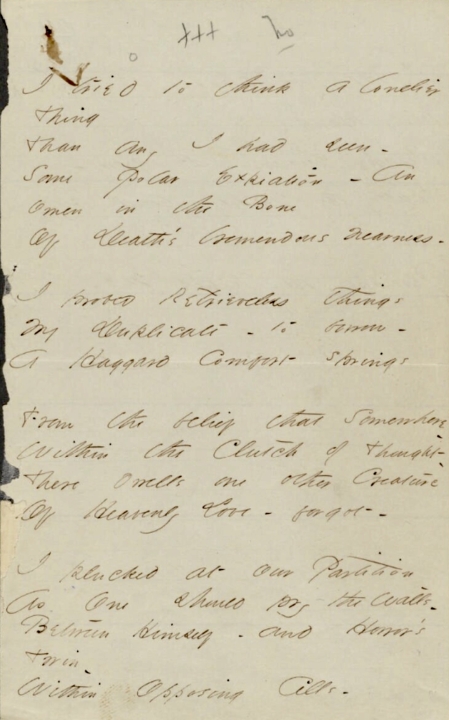 +++
I tried to think a lonelier
Thing
Than any I had seen -
Some Polar Expiation - An
Omen in the Bone
Of Death's tremendous nearness -
I probed Retrieveless things
My Duplicate - to borrow -
A Haggard Comfort springs
From the belief that Somewhere
Within the Clutch of Thought -
There dwells one other Creature
Of Heavenly Love - forgot -
I plucked at our Partition
As One should pry the Walls -
Between Himself - and Horror's
Twin
Within Opposing Cells -